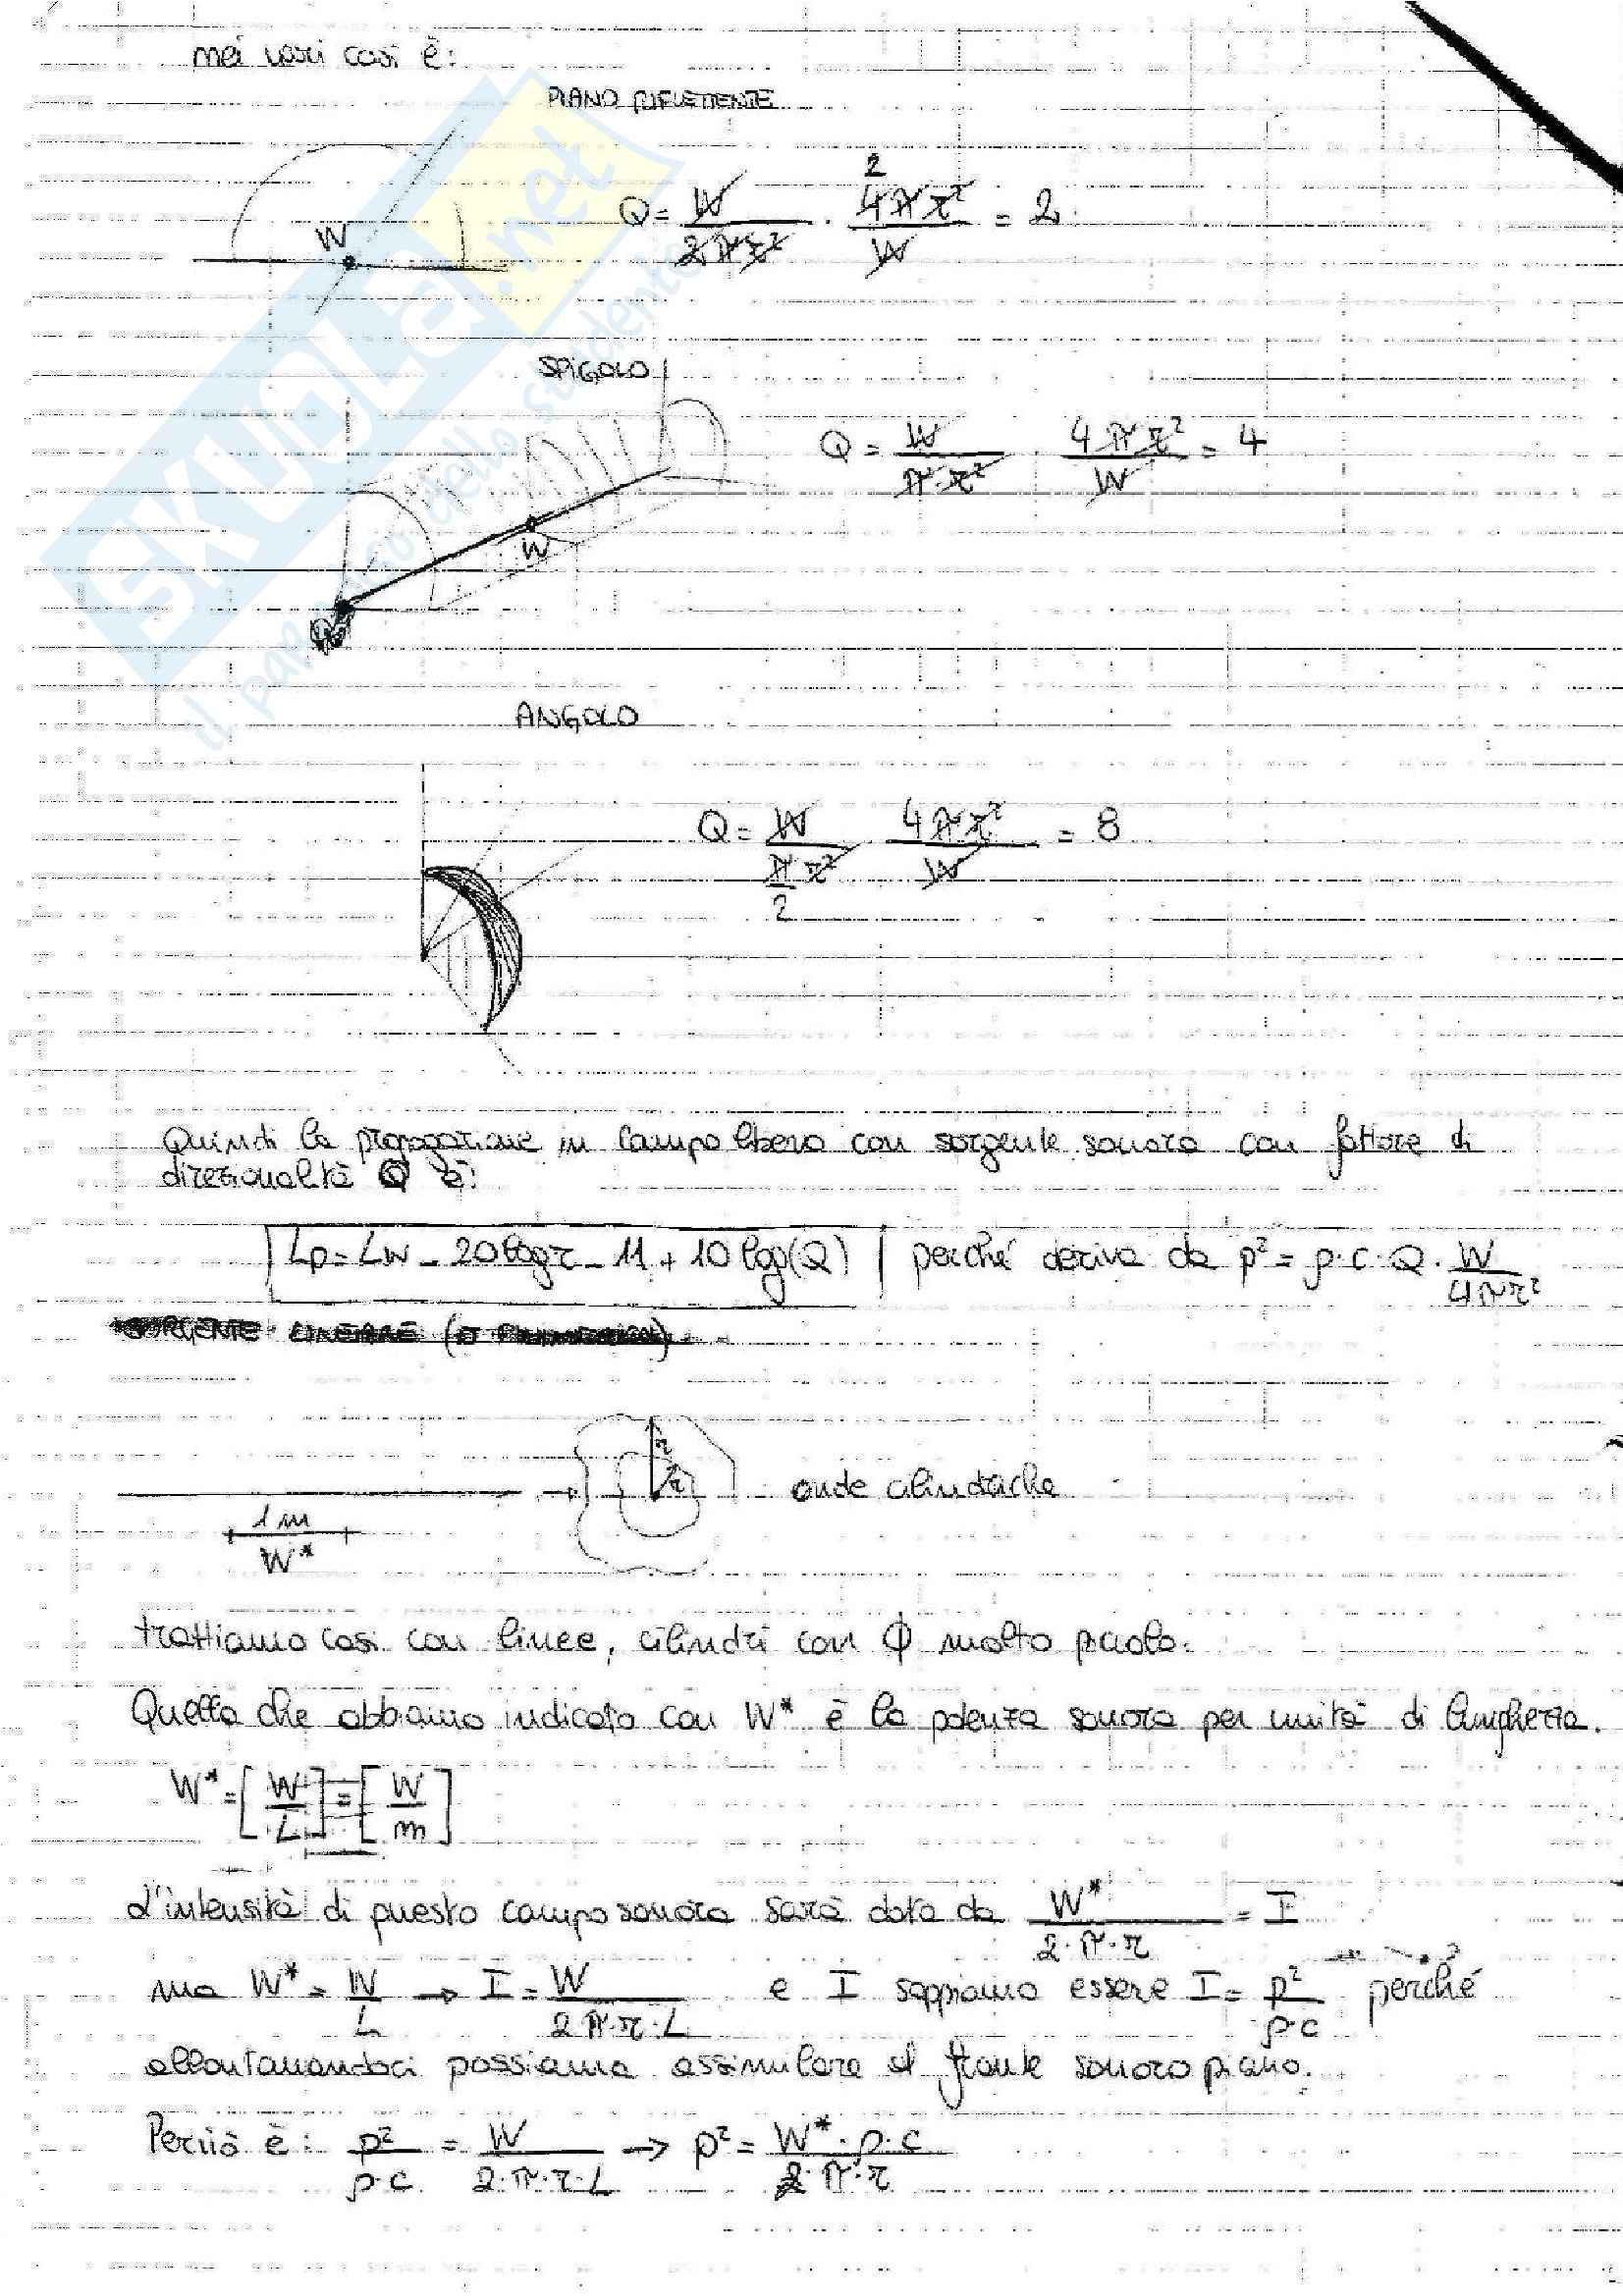 nei vari casi è:
PIANO RIFLETTENTE
W
Q = W / 2πr² · 4πr² / W = 2
2
SPIGOLO
Q = W / π·r² · 4πr² / W = 4
W
ANGOLO
Q = W / (π/2 r²) 4πr² / W = 8
Quindi la propagazione in campo libero con sorgente sonora con fattore di
direzionalità Q è:
Lp = Lw - 20 log r - 11 + 10 log(Q) perché deriva da p² = ρ·c·Q· W / 4πr²
SORGENTE LINEARE (o
r
r
onde cilindriche
1 m
W*
trattiamo casi con linee, cilindri con ϕ molto piccolo.
Quella che abbiamo indicato con W* è la potenza sonora per unità di lunghezza.
W* = [W / L] = [W / m]
L'intensità di questo campo sonoro sarà data da W* / 2·π·r = I
ma W* = W / L → I = W / 2π·r·L e I sappiamo essere I = p² / ρc perché
allontanandoci possiamo assimilare al fronte sonoro piano.
Perciò è: p² / ρ·c = W / 2·π·r·L → p² = W*·ρ·c / 2·π·r
SKUOLA.net
il paradiso dello studente